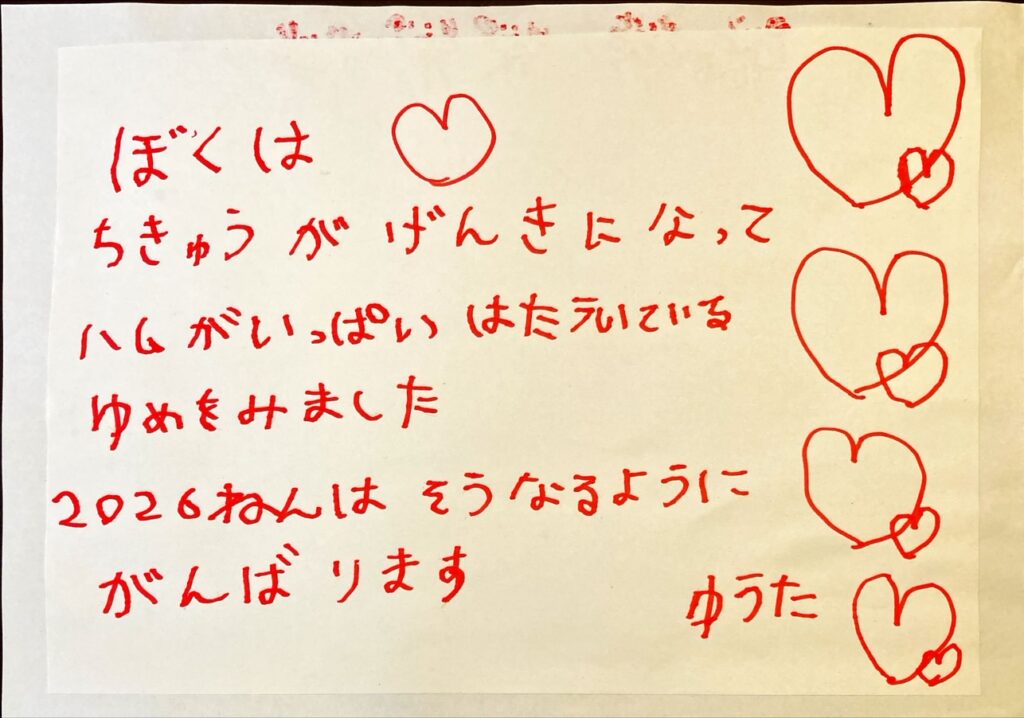 ぼくは
ちきゅう が げんきになって
ハムがいっぱい はたラいている
ゆめをみました
2026ねんは そうなるように
がんばります
ゆうた